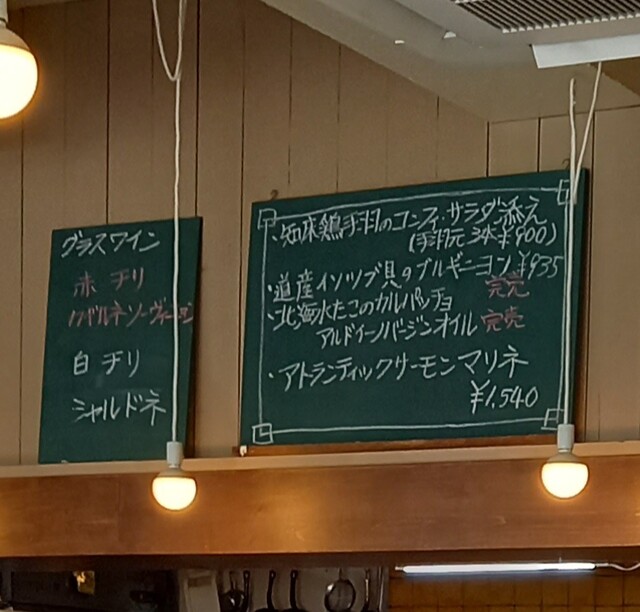 グラスワイン
赤 チリ
カベルネソーヴィニヨン
白 チリ
シャルドネ
・知床鶏手羽のコンフィ・サラダ添え
(手羽元 3本 ¥900)
・道産イソツブ貝のブルギニヨン ¥935
完売
・北海水たこのカルパッチョ
アルドイーノバージンオイル 完売
・アトランティックサーモンマリネ
¥1,540